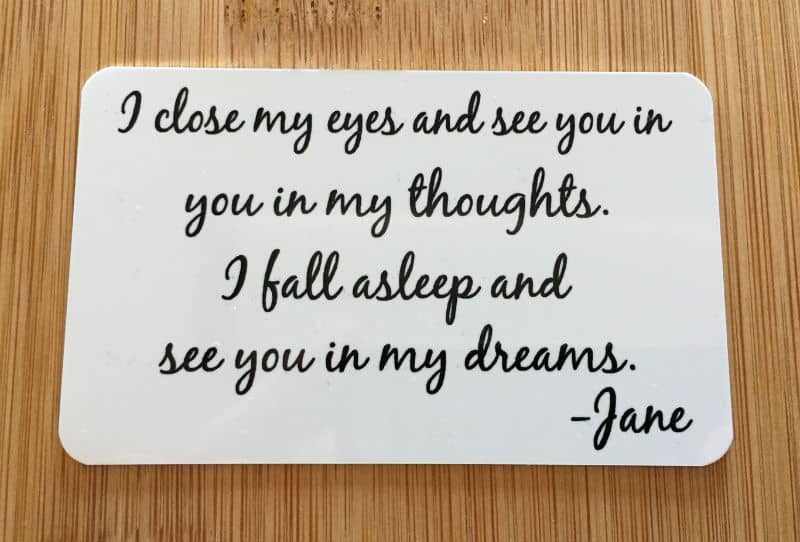 I close my eyes and see you in
you in my thoughts.
I fall asleep and
see you in my dreams.
-Jane